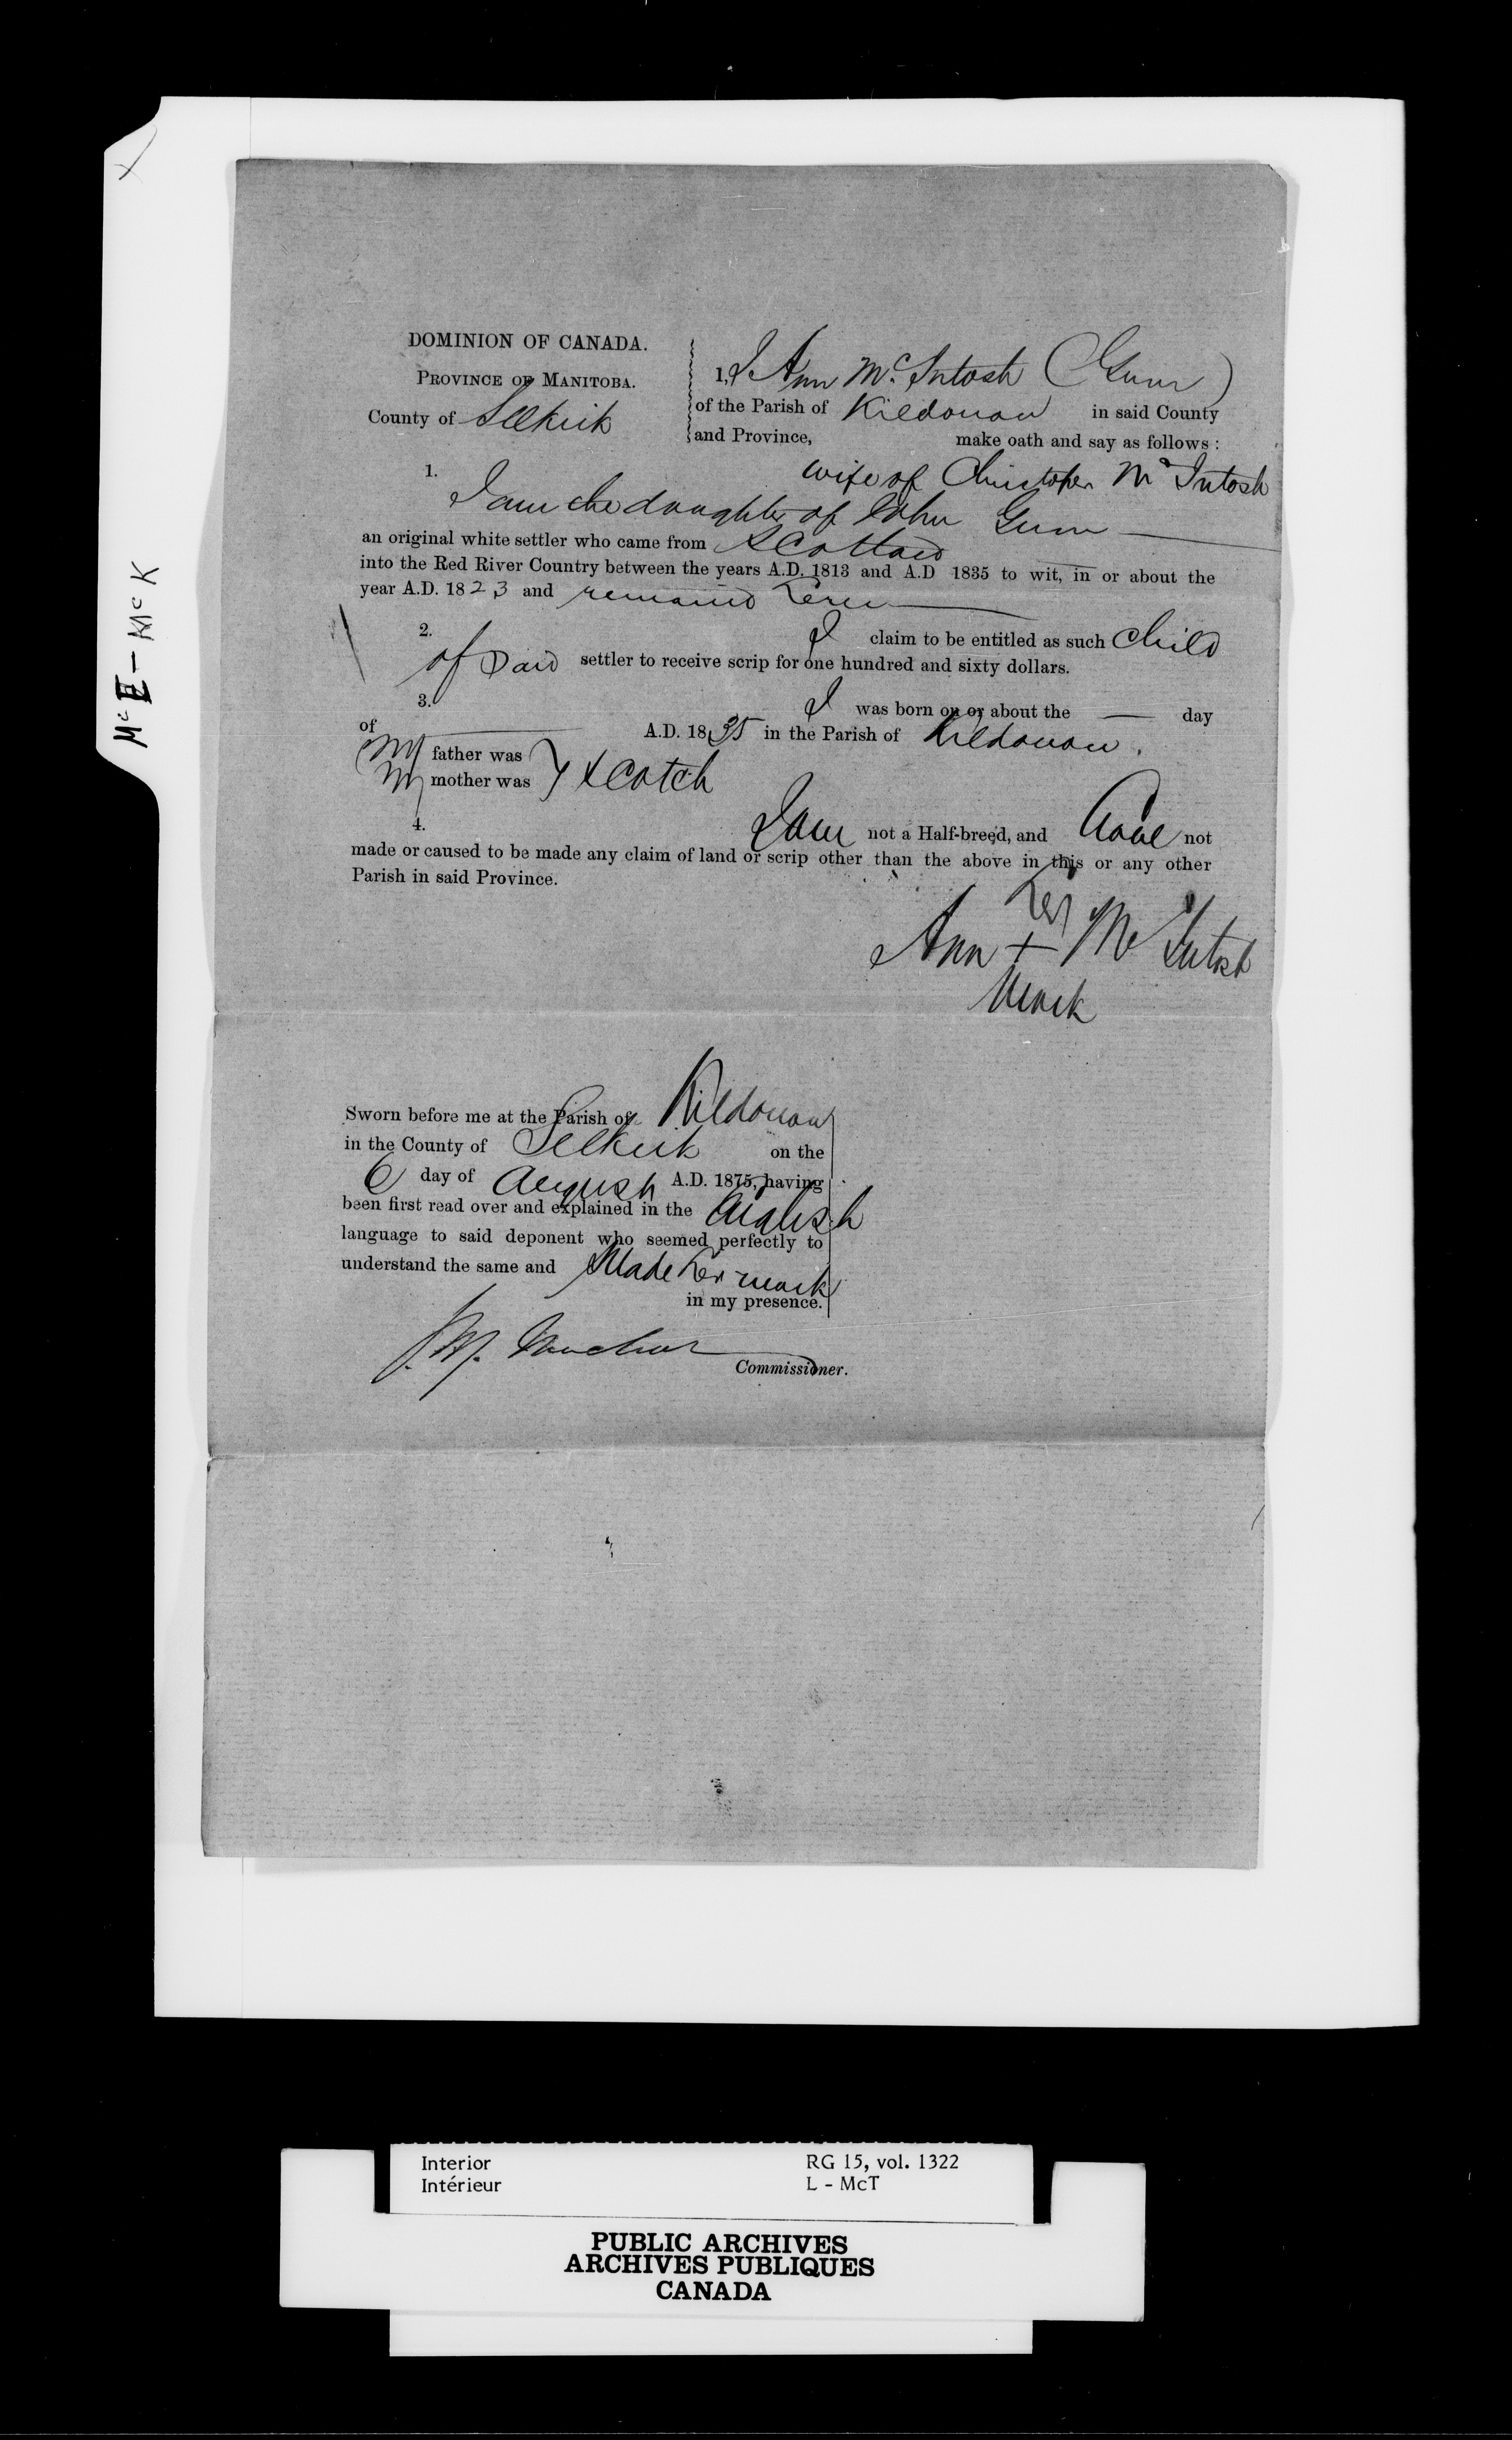 DOMINION OF CANADA.
PROVINCE OF MANITOBA.
County of Selkirk
1, I Ann McIntosh (Gunn)
of the Parish of Kildonan in said County
and Province, make oath and say as follows :
wife of Christopher McIntosh
1.
I am the daughter of John Gunn
an original white settler who came from Scotland
into the Red River Country between the years A.D. 1813 and A.D 1835 to wit, in or about the
year A.D. 1823 and remained here
2.
I claim to be entitled as such Child
of said settler to receive scrip for one hundred and sixty dollars.
3.
I was born on or about the — day
of — A.D. 1835 in the Parish of Kildonan.
My father was
My mother was } Scotch
4.
I am not a Half-breed, and have not
made or caused to be made any claim of land or scrip other than the above in this or any other
Parish in said Province.
her
Ann + McIntosh
Mark
Sworn before me at the Parish of Kildonan
in the County of Selkirk on the
6 day of August A.D. 1875, having
been first read over and explained in the English
language to said deponent who seemed perfectly to
understand the same and Made her mark
in my presence.
Commissioner.
McI - McK
X
Interior RG 15, vol. 1322
Intérieur L - McT
PUBLIC ARCHIVES
ARCHIVES PUBLIQUES
CANADA